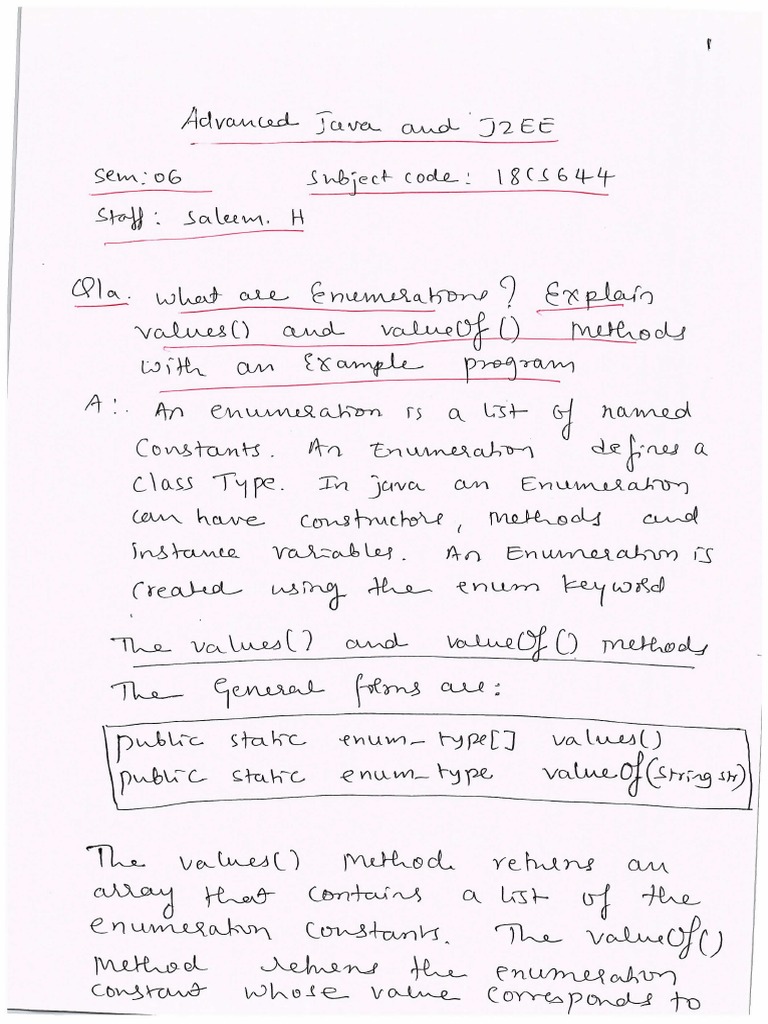 1
Advanced Java and J2EE
Sem: 06 Subject code: 18CS644
Staff: Saleem. H
Q1a. What are Enumerations? Explain
values() and valueOf() methods
with an Example program
A:. An enumeration is a list of named
Constants. An Enumeration defines a
Class Type. In java an Enumeration
can have constructors, methods and
instance variables. An Enumeration is
created using the enum keyword
The values() and valueOf() methods
The General forms are:
public static enum_type[] values()
public static enum_type valueOf(String str)
The values() method returns an
array that contains a list of the
enumeration constants. The valueOf()
method returns the enumeration
constant whose value corresponds to